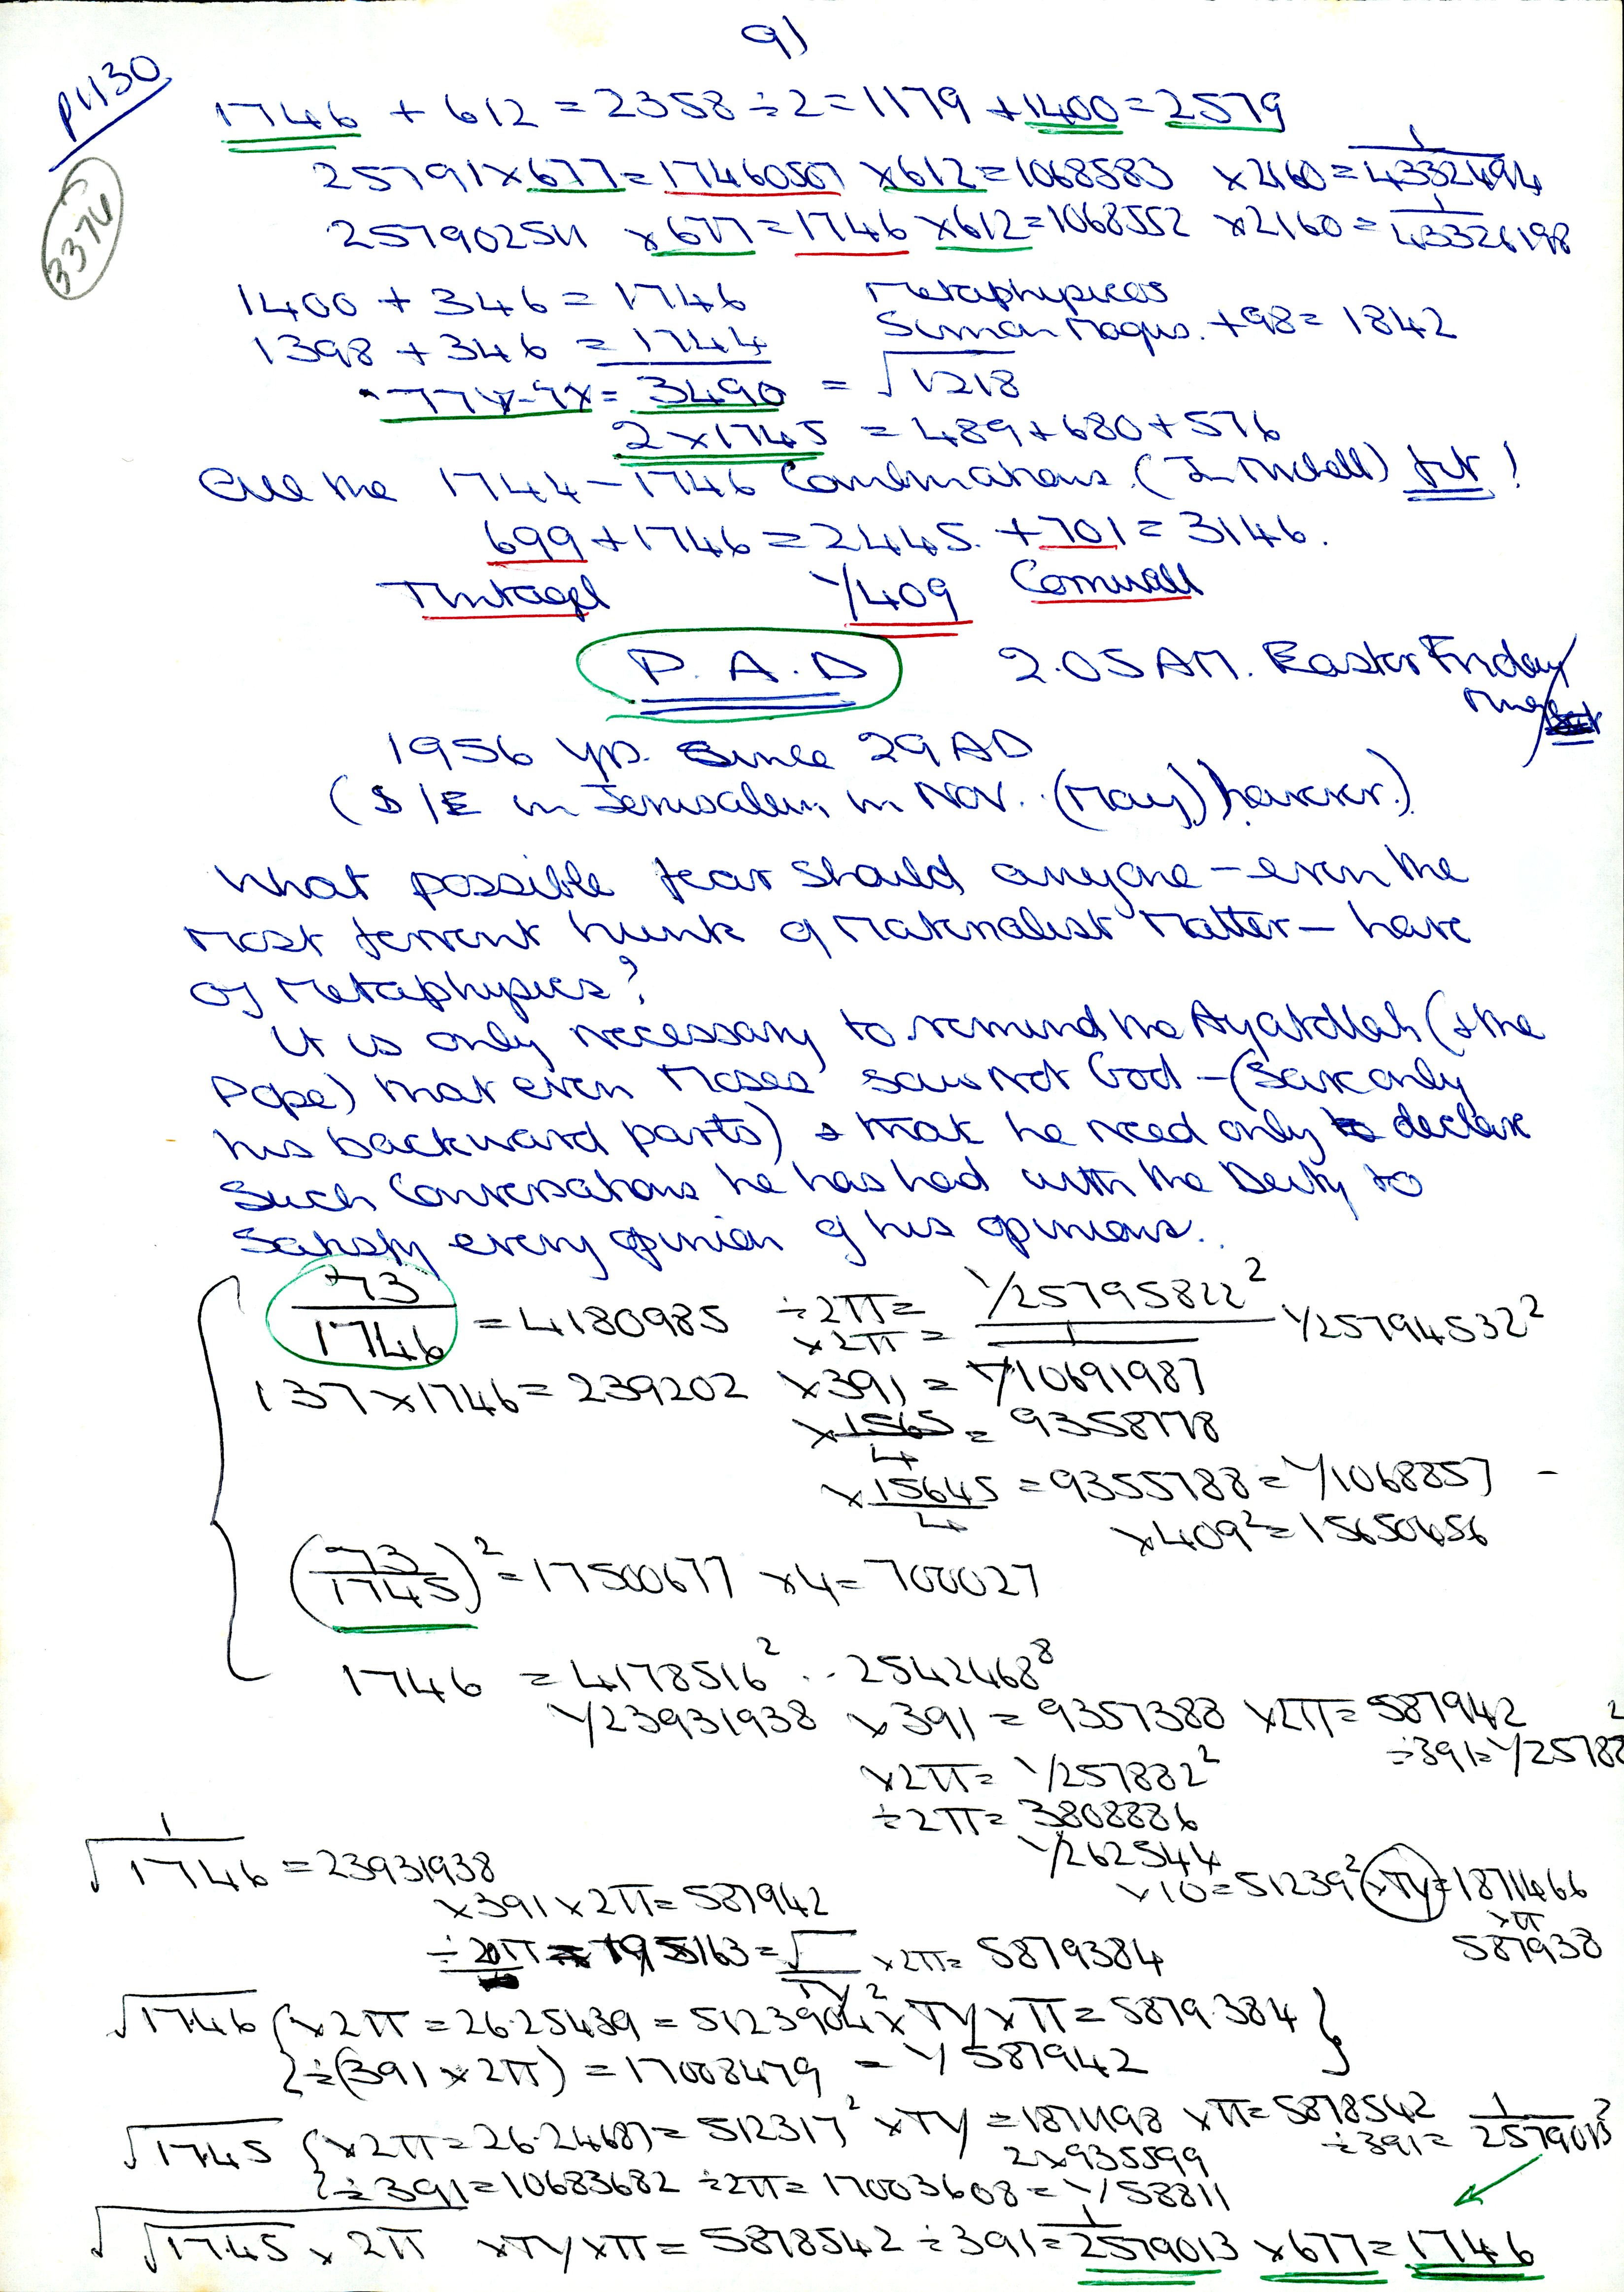 9)
P1130
3374
1746 + 612 = 2358 ÷ 2 = 1179 + 1400 = 2579
25791 x 677 = 17460507 x 612 = 1068583 x 2160 = 1/4332494
257902511 x 677 = 1746 x 612 = 1068552 x 2160 = 1/43326198
1400 + 346 = 1746 Metaphysicas
1398 + 346 = 1744 Simon Magus. + 98 = 1842
= 3490 = √1218
2 x 1745 = 489 + 680 + 576
All the 1744 – 1746 Combinations. (J Michell) fit!
699 + 1746 = 2445. + 701 = 3146.
Tintagel 1/409 Cornwall
P.A.D 2.05 AM. Easter Friday
1956 yrs. Since 29 AD
(S/E in Jerusalem in Nov. (May) however.)
What possible fear should anyone – even the
most fervent hunk of Materialist Matter – have
of Metaphysics?
It is only necessary to remind the Ayatollah (& the
Pope) that even Moses saw not God – (Save only
his backward parts) & that he need only declare
Such Conversations he has had with the Deity to
Satisfy every opinion of his opinions..
73/1746 = 4180985 ÷2π = 1/25795822² 1/25794532²
x2π =
137 x 1746 = 239202 x 391 = 1/10691987
x 1565/4 = 9358778
x 15645/4 = 9355788 = 1/1068857 –
x 409² = 15650656
(73/1745)² = 17500677 x 4 = 700027
1746 = 4178516² .. 2542468⁸
1/23931938 x 391 = 9357388 x 2π = 587942
÷391 = 1/25788²
x2π = 1/257882²
÷2π = 3808886
1/262544
x10 = 51239² x TY = 1871466
xπ
587938
1/√1746 = 23931938
x 391 x 2π = 587942
5163 = √ x2π = 5879384
√17.46 { x2π = 26.25439 = 5123904² x TY x π = 5879.384 }
{ ÷(391 x 2π) = 17008479 = 1/587942
√17.45 { x2π = 26.24687 = 512317² x TY = 1871198 x π = 5878542 ÷391 = 1/2579013²
2 x 935599
{ ÷391 = 10683682 ÷2π = 17003608 = 1/58811
√√17.45 x 2π x TY x π = 5878542 ÷ 391 = 1/2579013 x 677 = 1746